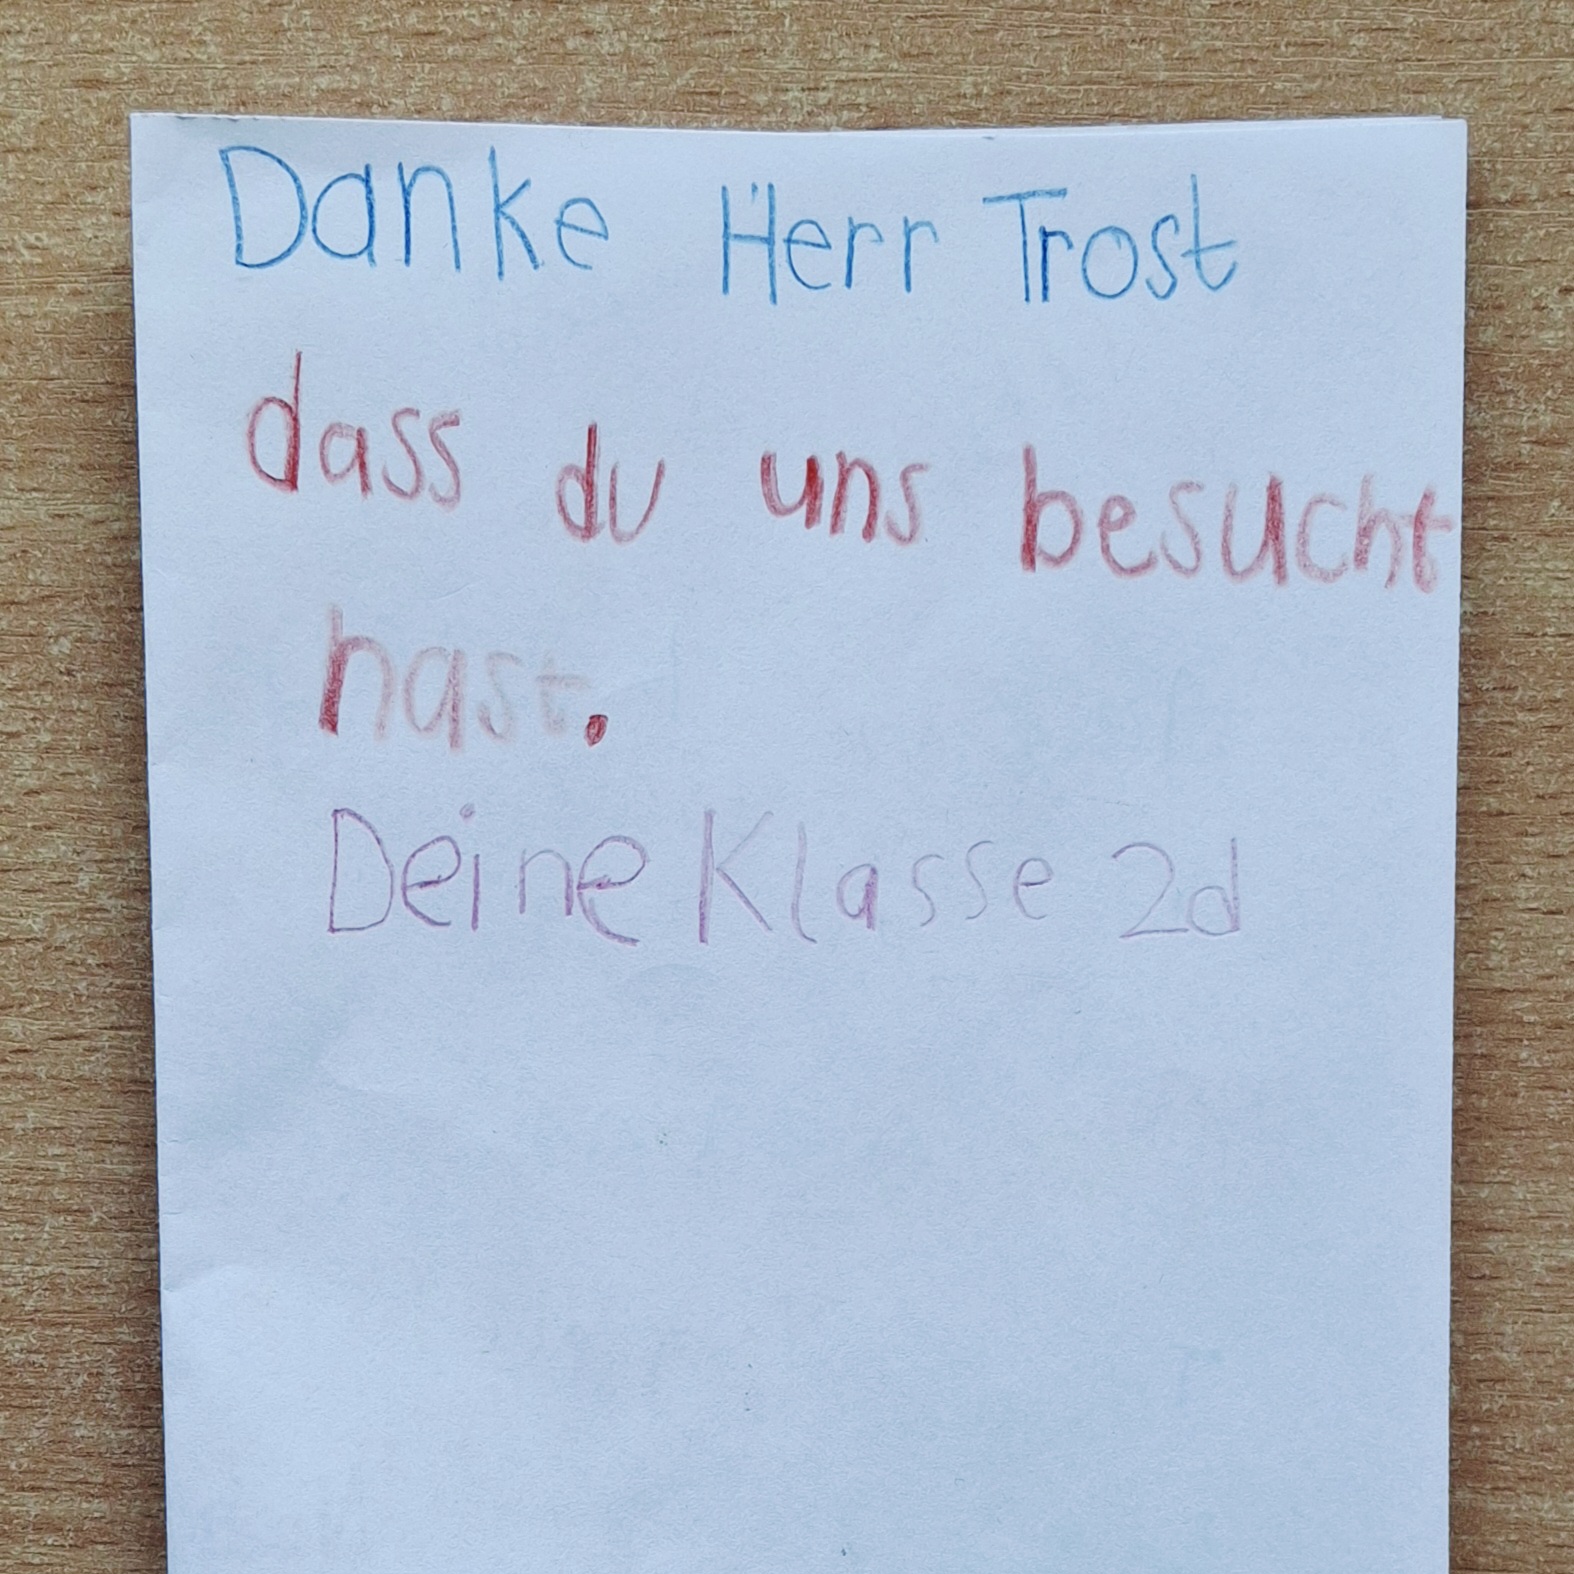 Danke Herr Trost
dass du uns besucht
hast.
Deine Klasse 2d